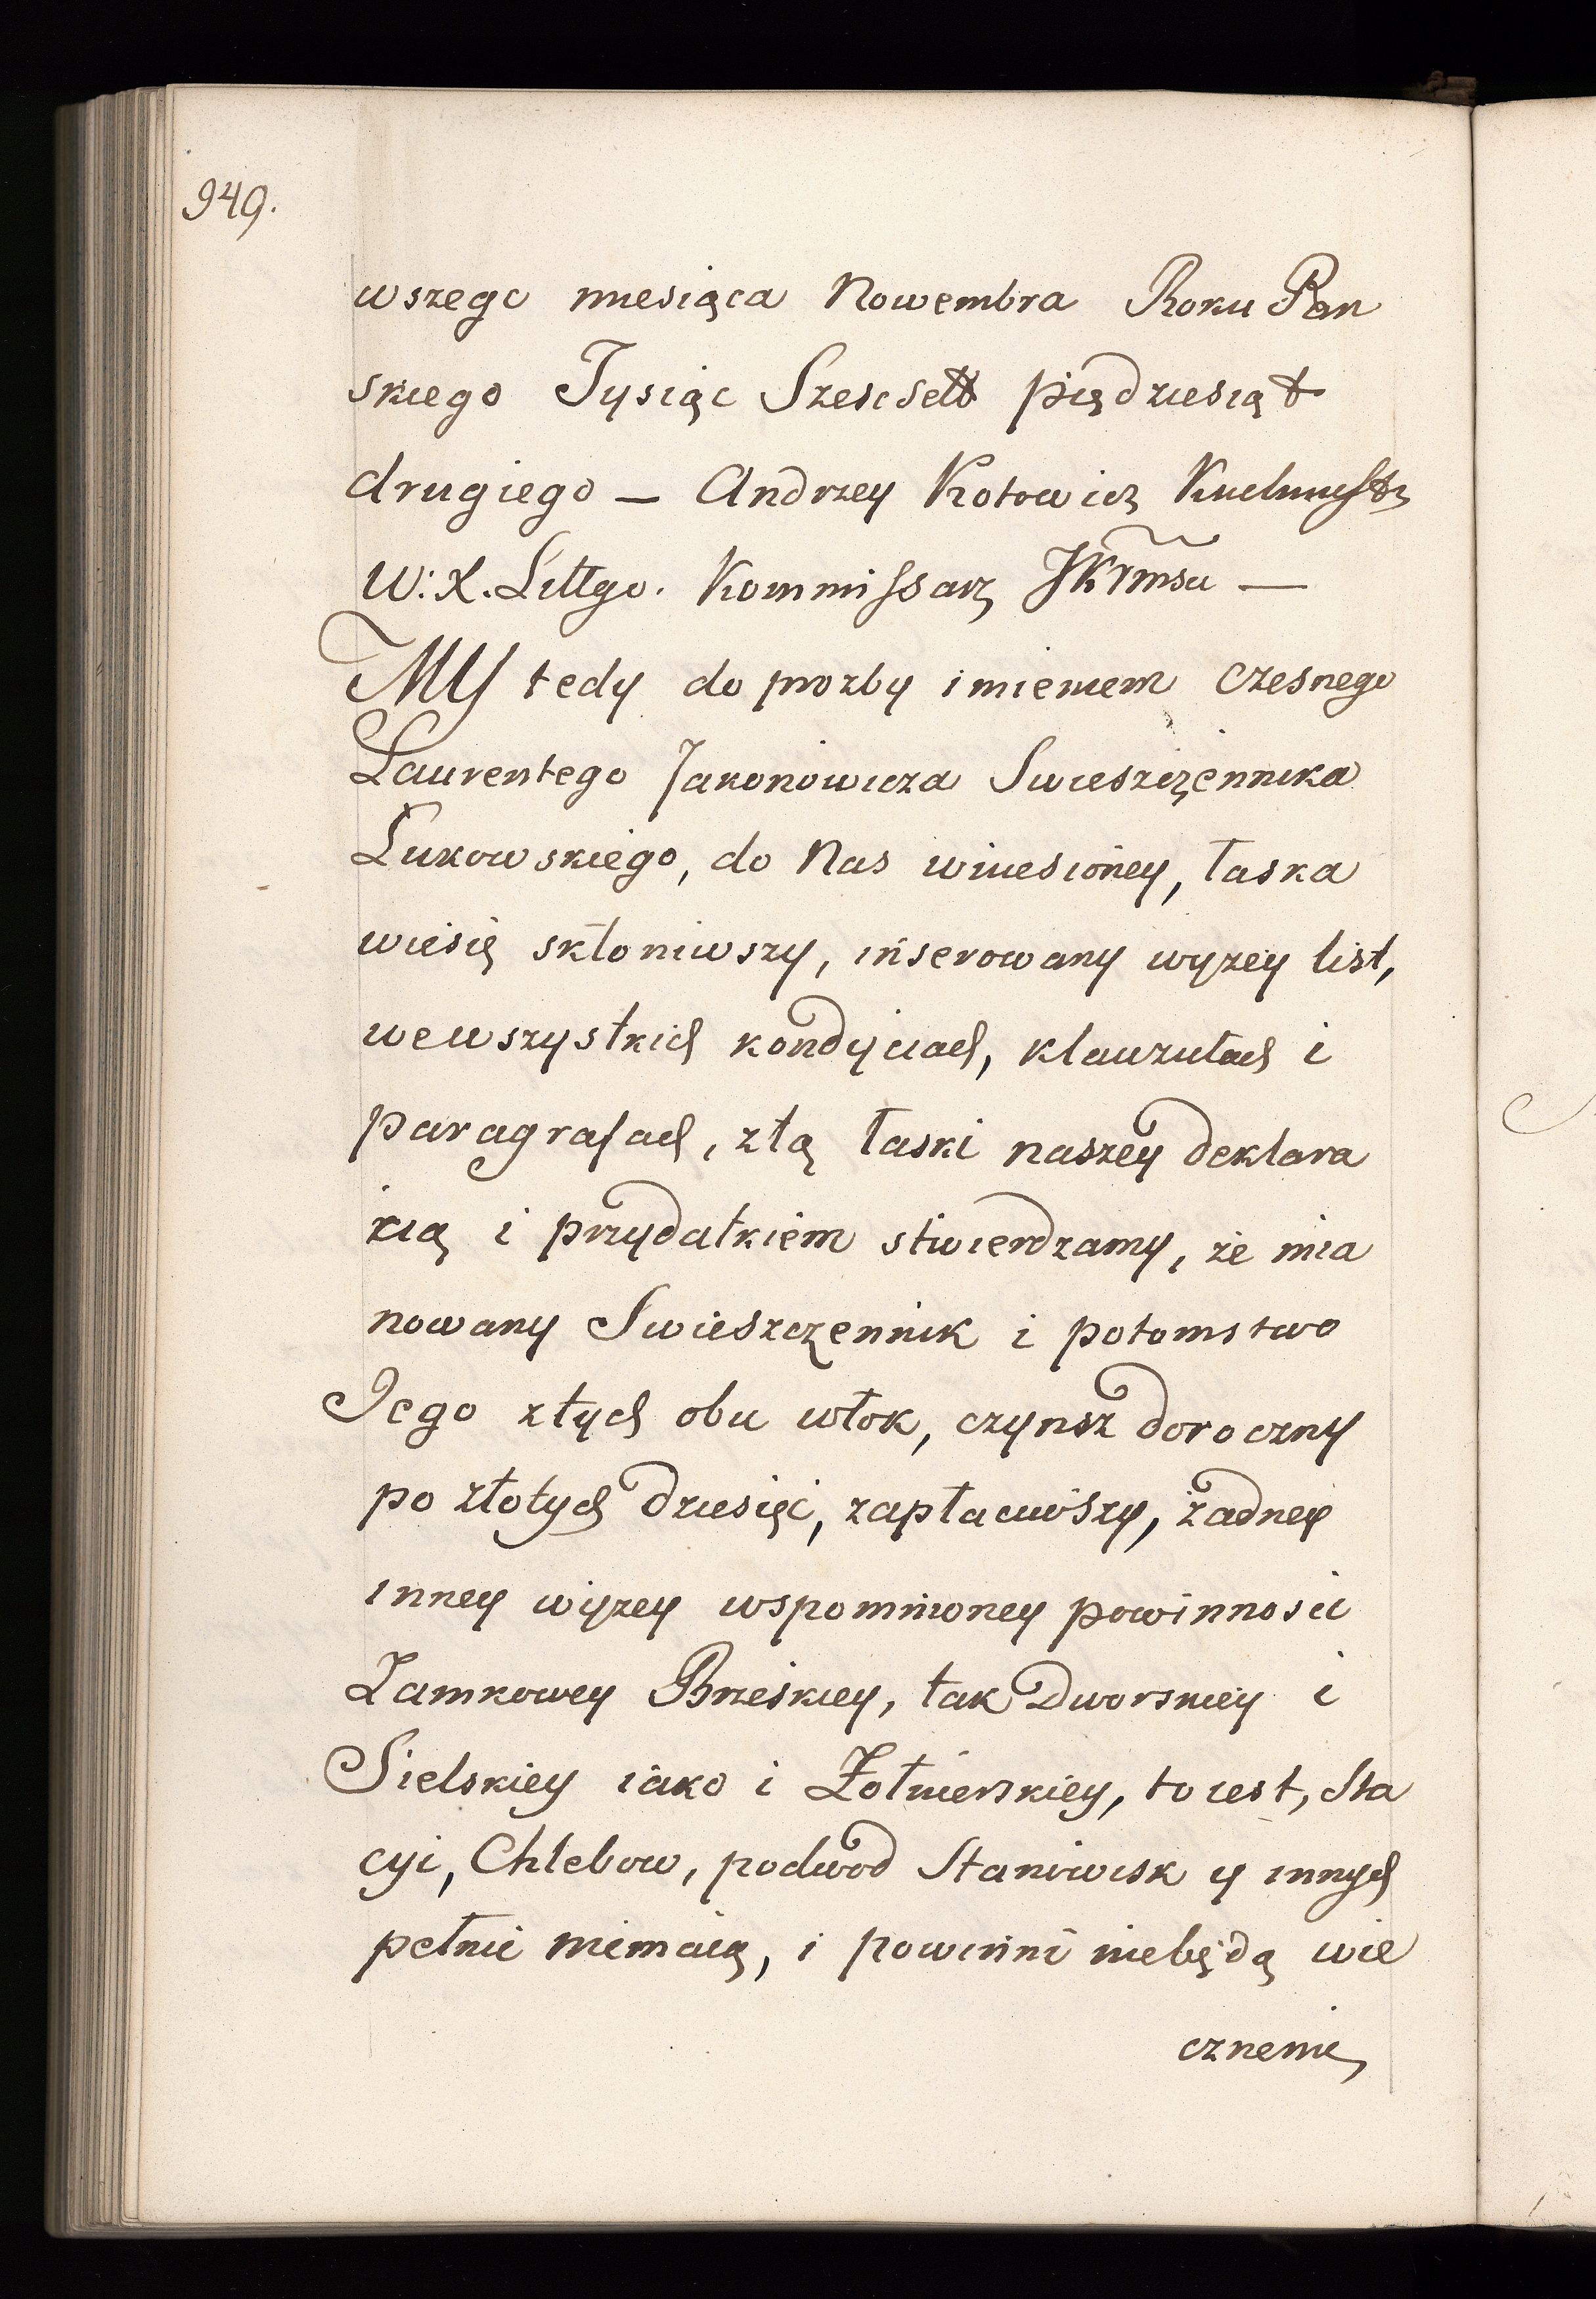 949.
wszego miesiąca Nowembra Roku Pan
skiego Tysiąc Szescset piędziesiąt
drugiego — Andrzey Kotowicz Kuchmystrz
W: X. Littgo. Kommissarz JKrmsci —
MY tedy do prozby imieniem czesnego
Laurentego Jakonowicza Swieszczennika
Lukowskiego, do Nas wniesioney, łaska
wiesię skłoniwszy, inserowany wyzey list,
wewszystkich kondyciach, klauzułach i
paragrafach, ztą łaski naszey deklara
cią i przydatkiem stwierdzamy, że mia
nowany Swieszczennik i potomstwo
Jego ztych obu włok, czynsz doroczny
po złotych dziesięć, zapłaciwszy, żadney
inney wyzey wspomnioney powinnosci
Zamkowey Brzeskiey, tak Dworskiey i
Sielskiey iako i Żołnierskiey, to iest, Sta
cyi, Chlebow, podwod Stanowisk y innych
pełnić niemaią, i powinni niebędą wie
cznemi,